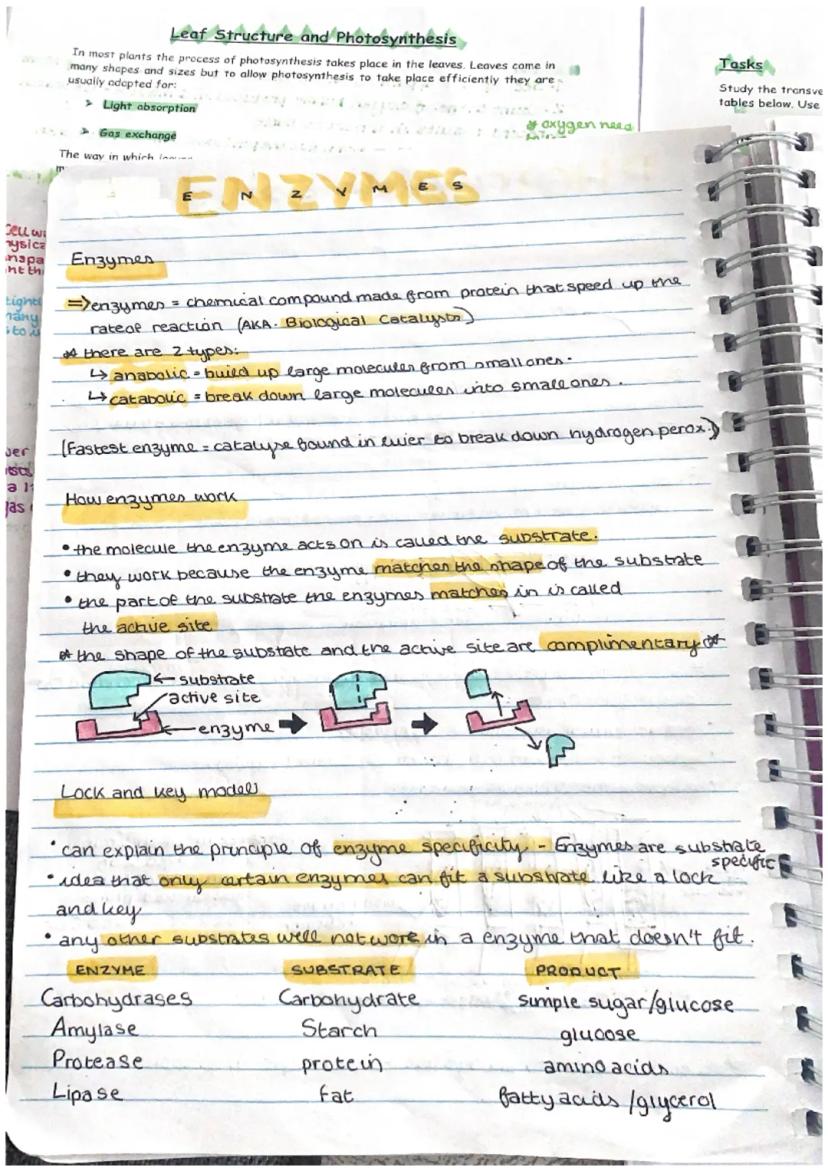 Leaf Structure and Photosynthesis
In most plants the process of photosynthesis takes place in the leaves. Leaves come in
many shapes and sizes but to allow photosynthesis to take place efficiently they are
usually adapted for:
➤ Light absorption
➤ Gas exchange
The way in which
Tasks
Study the transve
tables below. Use
* oxygen need
ENZYMES
Enzymes
=> enzymes = chemical compound made from protein that speed up the
rate of reaction (AKA. Biological Catalysts)
* there are 2 types:
↳ anabolic = build up large molecules from small ones.
↳ catabolic = break down large molecules into small ones.
(Fastest enzyme = catalyse found in liver to break down hydrogen perox.)
How enzymes work
• the molecule the enzyme acts on is called the substrate.
• they work because the enzyme matches the shape of the substrate
• the part of the substrate the enzymes matches in is called
the active site
* the shape of the substrate and the active site are complimentary *
substrate
active site
enzyme
Lock and key model
• can explain the principle of enzyme specificity - Enzymes are substrate
specific
• idea that only certain enzymes can fit a substrate like a lock
and key
• any other substrates will not work in a enzyme that doesn't fit.
ENZYME SUBSTRATE PRODUCT
Carbohydrases Carbohydrate simple sugar/glucose
Amylase Starch glucose
Protease protein amino acids
Lipase fat fatty acids/glycerol